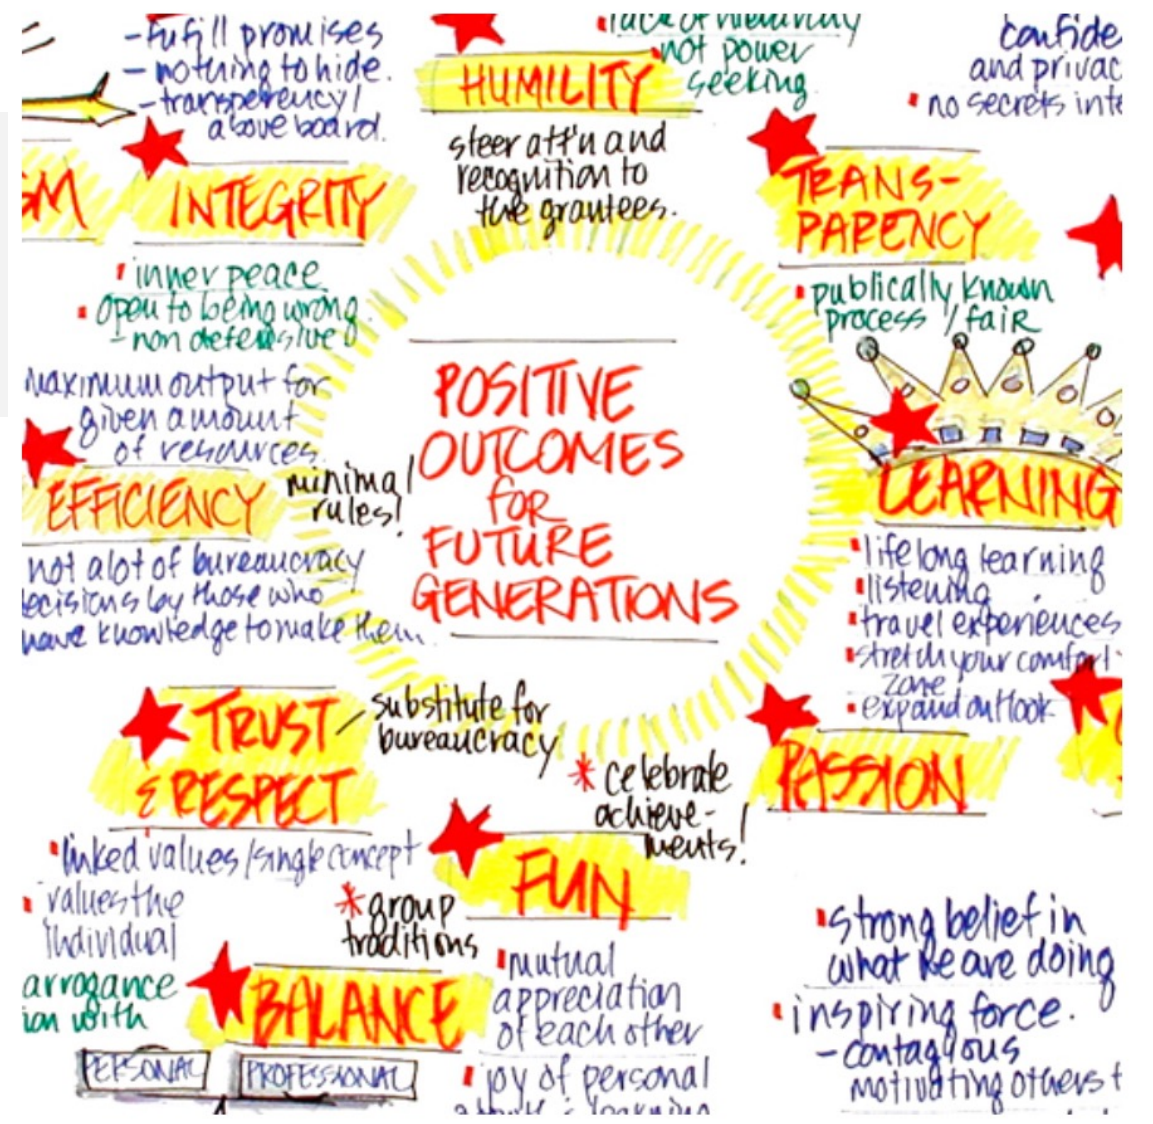 -fufill promises
- nothing to hide.
-transperency/
above board.
INTEGRITY
inner peace
open to being wrong
- non defensive
not power
seeking
HUMILITY
steer att'n and
recognition to
the grantees.
confide
and privac
no secrets inte
TRANS-
PARENCY
publically known
process / fair
maximum output for
given amount
of resources.
EFFICIENCY
minimal
rules!
not alot of bureaucracy
ecisions by those who
have knowledge to make them.
POSITIVE
OUTCOMES
for
FUTURE
GENERATIONS
LEARNING
lifelong learning
listening
travel experiences
stretch your comfort
zone
expand outlook
TRUST
& RESPECT
substitute for
bureaucracy
linked values/single concept
values the
individual
arrogance
ion with
* celebrate
achieve-
ments!
FUN
* group
traditions
mutual
appreciation
of each other
joy of personal
BALANCE
PERSONAL
PROFESSIONAL
PASSION
strong belief in
what we are doing
inspiring force.
- contagious
motivating others t